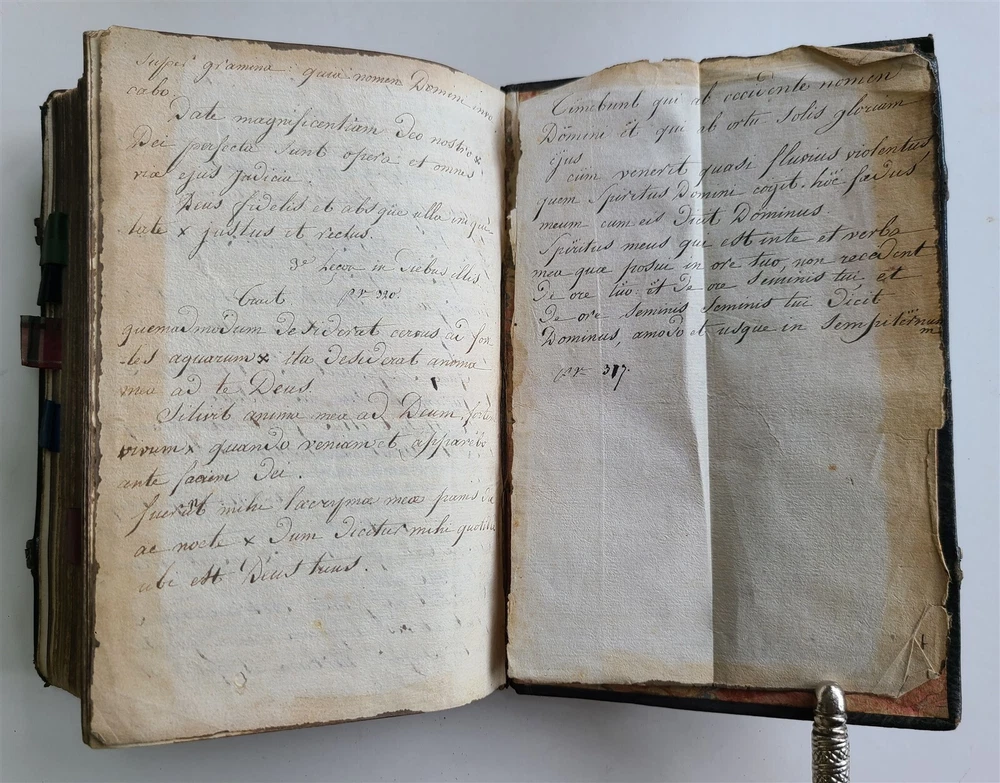 super gramina: quia nomen Domini invo
cabo.
Date magnificentiam Deo nostro x
Dei perfecta sunt opera et omnes
viæ ejus judicia.
Deus fidelis et absque ulla iniqui
tate x justus et rectus.
in diebus illis
Tract. pr. 320.
quemadmodum desiderat cervus ad fon
-tes aquarum x ita desiderat anima
mea ad te Deus.
Sitivit anima mea ad Deum, fontem
vivum x quando veniam et apparebo
ante faciem Dei.
fuerunt mihi lacrymæ meæ panis die
ac nocte x dum dicitur mihi quotidie
ubi est Deus tuus.
Timebunt qui ab occidente nomen
Domini et qui ab ortu solis gloriam
ejus
cum venerit quasi fluvius violentus
quem Spiritus Domini cogit. höc fœdus
meum cum eis dicit Dominus.
Spiritus meus qui est in te et verba
mea quæ posui in ore tuo, non recedent
de ore tuo et de ore seminis tui et
de ore seminis seminis tui dicit
Dominus, amodo et usque in sempiternum
m
pr. 317.